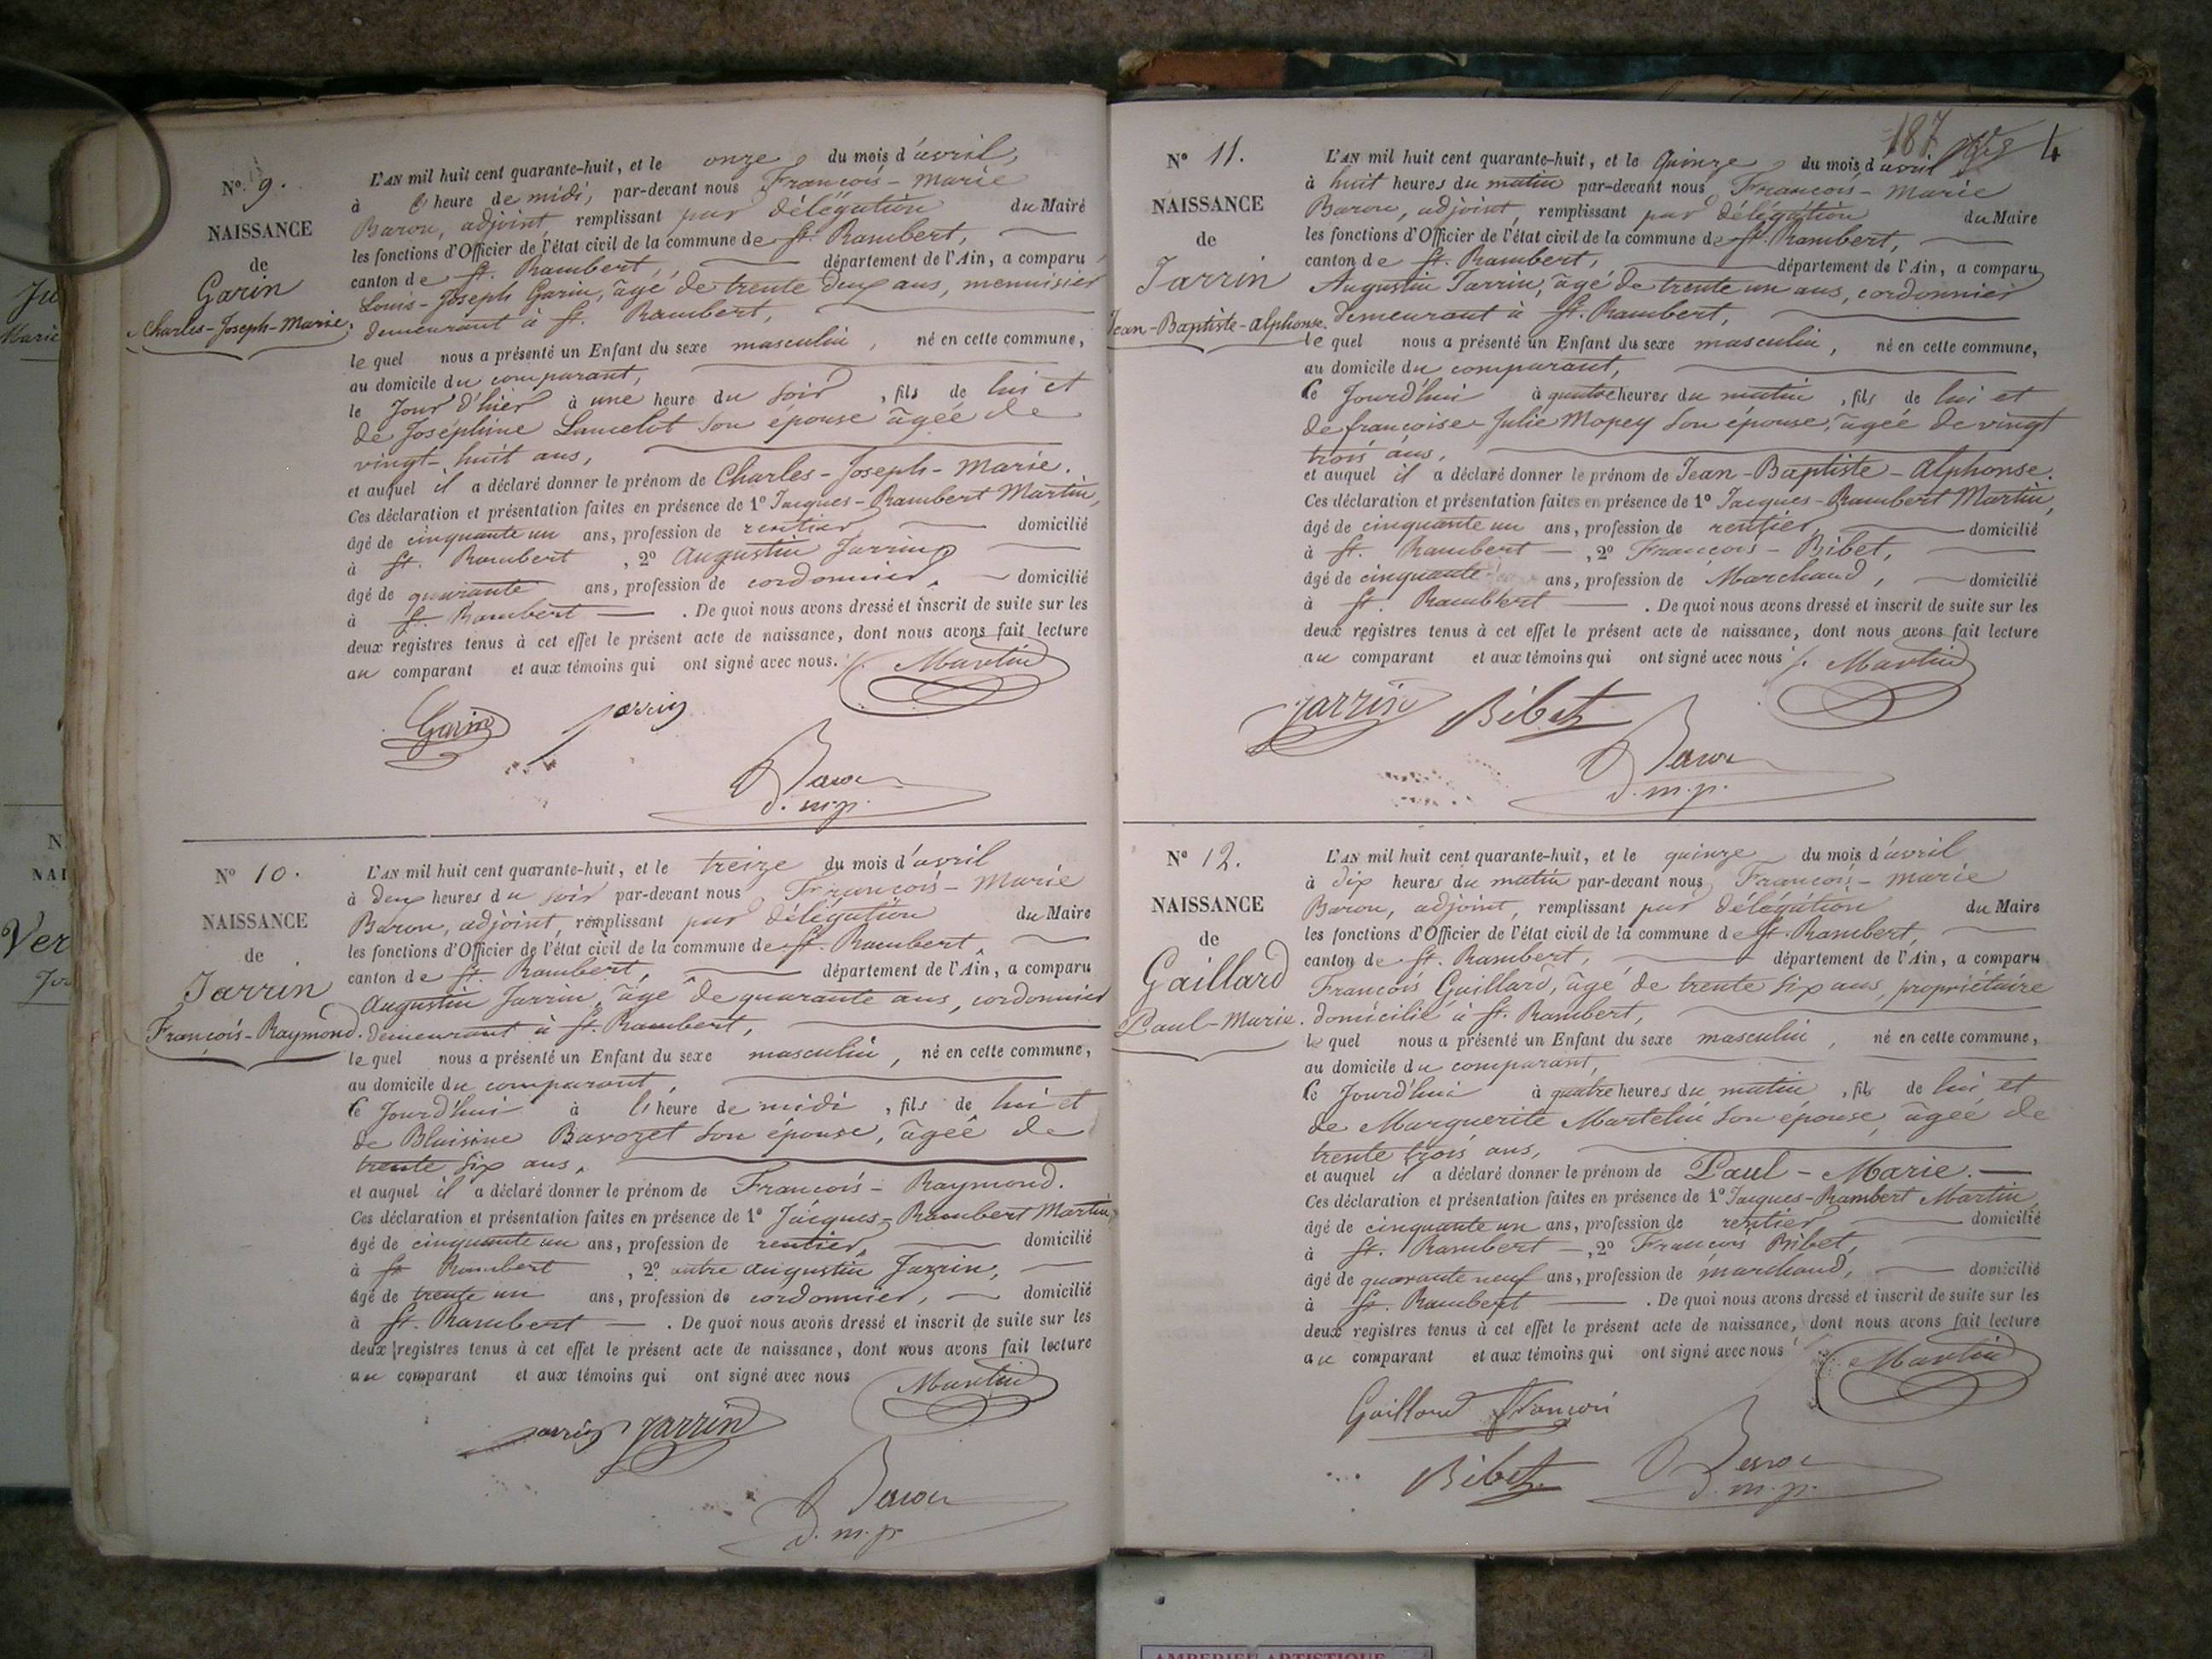 N° 9.
NAISSANCE
de
Garin
Charles-Joseph-Marie.
L'AN mil huit cent quarante-huit, et le onze du mois d'avril,
à l'heure de midi, par-devant nous François-Marie
Baron, adjoint, remplissant par délégation du Maire
les fonctions d'Officier de l'état civil de la commune de St. Rambert,
canton de St. Rambert, département de l'Ain, a comparu
Louis-Joseph Garin, âgé de trente deux ans, menuisier
demeurant à St. Rambert,
le quel nous a présenté un Enfant du sexe masculin, né en cette commune,
au domicile du comparant,
le Jour d'hier à une heure du soir, fils de lui et
de Joséphine Lancelot son épouse âgée de
vingt-huit ans,
et auquel il a déclaré donner le prénom de Charles-Joseph-Marie.
Ces déclaration et présentation faites en présence de 1° Jacques-Rambert Martin,
âgé de cinquante un ans, profession de rentier domicilié
à St. Rambert, 2° Augustin Jarrin
âgé de quarante ans, profession de cordonnier, domicilié
à St. Rambert. De quoi nous avons dressé et inscrit de suite sur les
deux registres tenus à cet effet le présent acte de naissance, dont nous avons fait lecture
au comparant et aux témoins qui ont signé avec nous. Martin
Garin Jarrin
Baron
d. m. p.
N° 10.
NAISSANCE
de
Jarrin
François-Raymond.
L'AN mil huit cent quarante-huit, et le treize du mois d'avril
à deux heures du soir par-devant nous François-Marie
Baron, adjoint, remplissant par délégation du Maire
les fonctions d'Officier de l'état civil de la commune de St. Rambert,
canton de St. Rambert, département de l'Ain, a comparu
Augustin Jarrin, âgé de quarante ans, cordonnier
demeurant à St. Rambert,
le quel nous a présenté un Enfant du sexe masculin, né en cette commune,
au domicile du comparant,
ce Jourd'hui à l'heure de midi, fils de lui et
de Blaisine Bavozet son épouse, âgée de
trente six ans,
et auquel il a déclaré donner le prénom de François-Raymond.
Ces déclaration et présentation faites en présence de 1° Jacques-Rambert Martin,
âgé de cinquante un ans, profession de rentier, domicilié
à St. Rambert, 2° autre Augustin Jarrin,
âgé de trente un ans, profession de cordonnier, domicilié
à St. Rambert. De quoi nous avons dressé et inscrit de suite sur les
deux registres tenus à cet effet le présent acte de naissance, dont nous avons fait lecture
au comparant et aux témoins qui ont signé avec nous Martin
Jarrin Jarrin
Baron
d. m. p.
187 4
N° 11.
NAISSANCE
de
Jarrin
Jean-Baptiste-Alphonse.
L'AN mil huit cent quarante-huit, et le Quinze du mois d'avril
à huit heures du matin par-devant nous François-Marie
Baron, adjoint, remplissant par délégation du Maire
les fonctions d'Officier de l'état civil de la commune de St. Rambert,
canton de St. Rambert, département de l'Ain, a comparu
Augustin Jarrin, âgé de trente un ans, cordonnier
demeurant à St. Rambert,
le quel nous a présenté un Enfant du sexe masculin, né en cette commune,
au domicile du comparant,
ce Jourd'hui à quatre heures du matin, fils de lui et
de françoise Julie Mopey son épouse, âgée de vingt
trois ans,
et auquel il a déclaré donner le prénom de Jean-Baptiste-Alphonse.
Ces déclaration et présentation faites en présence de 1° Jacques-Rambert Martin,
âgé de cinquante un ans, profession de rentier, domicilié
à St. Rambert, 2° François-Bibet,
âgé de cinquante ans, profession de Marchand, domicilié
à St. Rambert. De quoi nous avons dressé et inscrit de suite sur les
deux registres tenus à cet effet le présent acte de naissance, dont nous avons fait lecture
au comparant et aux témoins qui ont signé avec nous. Martin
Jarrin Bibet
Baron
d. m. p.
N° 12.
NAISSANCE
de
Gaillard
Paul-Marie.
L'AN mil huit cent quarante-huit, et le quinze du mois d'avril
à dix heures du matin par-devant nous François-Marie
Baron, adjoint, remplissant par délégation du Maire
les fonctions d'Officier de l'état civil de la commune de St. Rambert,
canton de St. Rambert, département de l'Ain, a comparu
François Gaillard, âgé de trente six ans, propriétaire
domicilié à St. Rambert,
le quel nous a présenté un Enfant du sexe masculin, né en cette commune,
au domicile du comparant,
ce Jourd'hui à quatre heures du matin, fils de lui et
de Marguerite Martelin son épouse, âgée de
trente trois ans,
et auquel il a déclaré donner le prénom de Paul-Marie.
Ces déclaration et présentation faites en présence de 1° Jacques-Rambert Martin,
âgé de cinquante un ans, profession de rentier domicilié
à St. Rambert, 2° François Bibet,
âgé de quarante neuf ans, profession de marchand, domicilié
à St. Rambert. De quoi nous avons dressé et inscrit de suite sur les
deux registres tenus à cet effet le présent acte de naissance, dont nous avons fait lecture
au comparant et aux témoins qui ont signé avec nous Martin
Gaillard François
Bibet Baron
d. m. p.